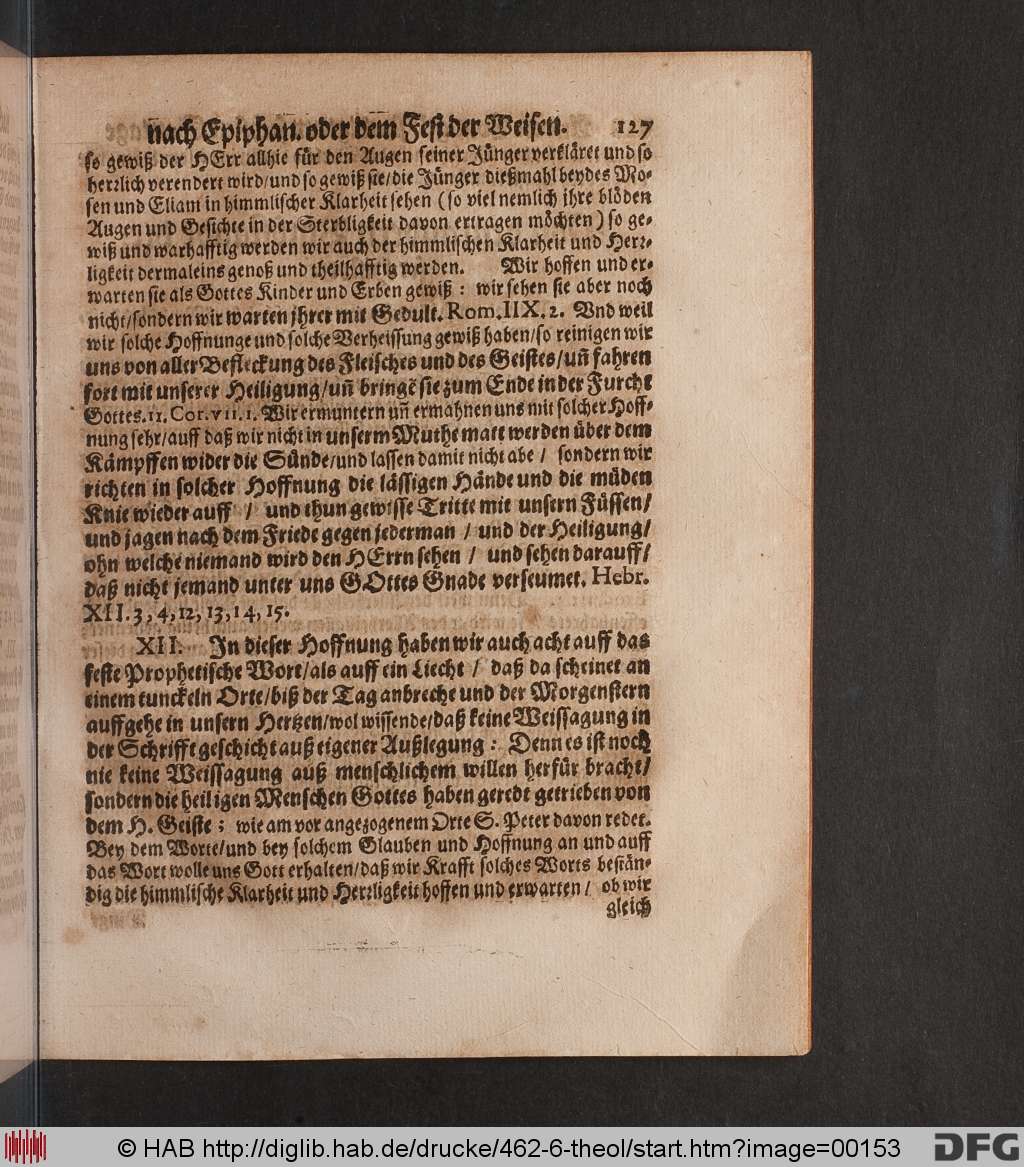 nach Epiphan. oder dem Fest der Weisen. 127
so gewiß der HErr allhie für den Augen seiner Jünger verkläret und so
herrlich verendert wird/und so gewiß sie/die Jünger dießmahl beydes Mo-
sen und Eliam in himmlischer Klarheit sehen (so viel nemlich ihre blöden
Augen und Gesichte in der Sterbligkeit davon ertragen möchten) so ge-
wiß und warhafftig werden wir auch der himmlischen Klarheit und Herr-
ligkeit dermaleins genoß und theilhafftig werden. Wir hoffen und er-
warten sie als Gottes Kinder und Erben gewiß: wir sehen sie aber noch
nicht/sondern wir warten jhrer mit Gedult. Rom. IIX. 2. Vnd weil
wir solche Hoffnunge und solche Verheissung gewiß haben/so reinigen wir
uns von aller Befleckung des Fleisches und des Geistes/uñ fahren
fort mit unserer Heiligung/uñ bringẽ sie zum Ende in der Furcht
Gottes. II. Cor. VII. 1. Wir ermuntern uñ ermahnen uns mit solcher Hoff-
nung sehr/auff daß wir nicht in unserm Muthe matt werden über dem
Kämpffen wider die Sünde/und lassen damit nicht abe / sondern wir
richten in solcher Hoffnung die lässigen Hände und die müden
Knie wieder auff / und thun gewisse Tritte mit unsern Füssen/
und jagen nach dem Friede gegen jederman / und der Heiligung/
ohn welche niemand wird den HErrn sehen / und sehen darauff/
daß nicht jemand unter uns GOttes Gnade verseumet. Hebr.
XII. 3, 4, 12, 13, 14, 15.
XII. In dieser Hoffnung haben wir auch acht auff das
feste Prophetische Wort/als auff ein Liecht / daß da scheinet an
einem tunckeln Orte/biß der Tag anbreche und der Morgenstern
auffgehe in unsern Hertzen/wol wissende/daß keine Weissagung in
der Schrifft geschicht auß eigener Außlegung: Denn es ist noch
nie keine Weissagung auß menschlichem willen herfür bracht/
sondern die heiligen Menschen Gottes haben geredt getrieben von
dem H. Geiste; wie am vor angezogenem Orte S. Peter davon redet.
Bey dem Worte/und bey solchem Glauben und Hoffnung an und auff
das Wort wolle uns Gott erhalten/daß wir Krafft solches Worts bestän-
dig die himmlische Klarheit und Herrligkeit hoffen und erwarten / ob wir
gleich
© HAB http://diglib.hab.de/drucke/462-6-theol/start.htm?image=00153 DFG